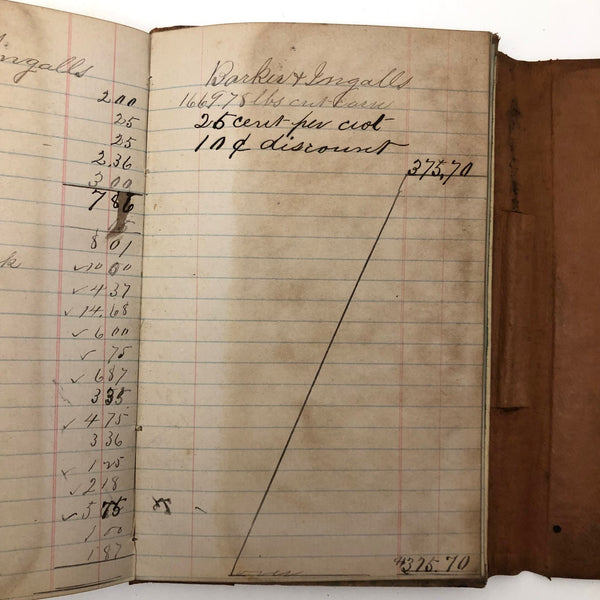 Ingalls
2.00
25
25
2.36
3 00
7 86
8 01
✓10 00
✓4 37
✓14.68
✓6 00
✓ 75
✓6 87
3 35
✓4 75
3 36
1 25
✓2 18
✓5 75
1 00
1 87
Barker & Ingalls
1669.78 lbs cut corn
25 cent per cwt
10 ¢ discount
375.70
375.70